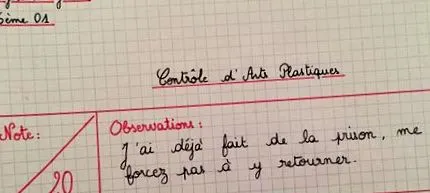 ème 01
Contrôle d'Arts Plastiques
Note:
Observations:
20
J'ai déjà fait de la prison, me
forcez pas à y retourner.